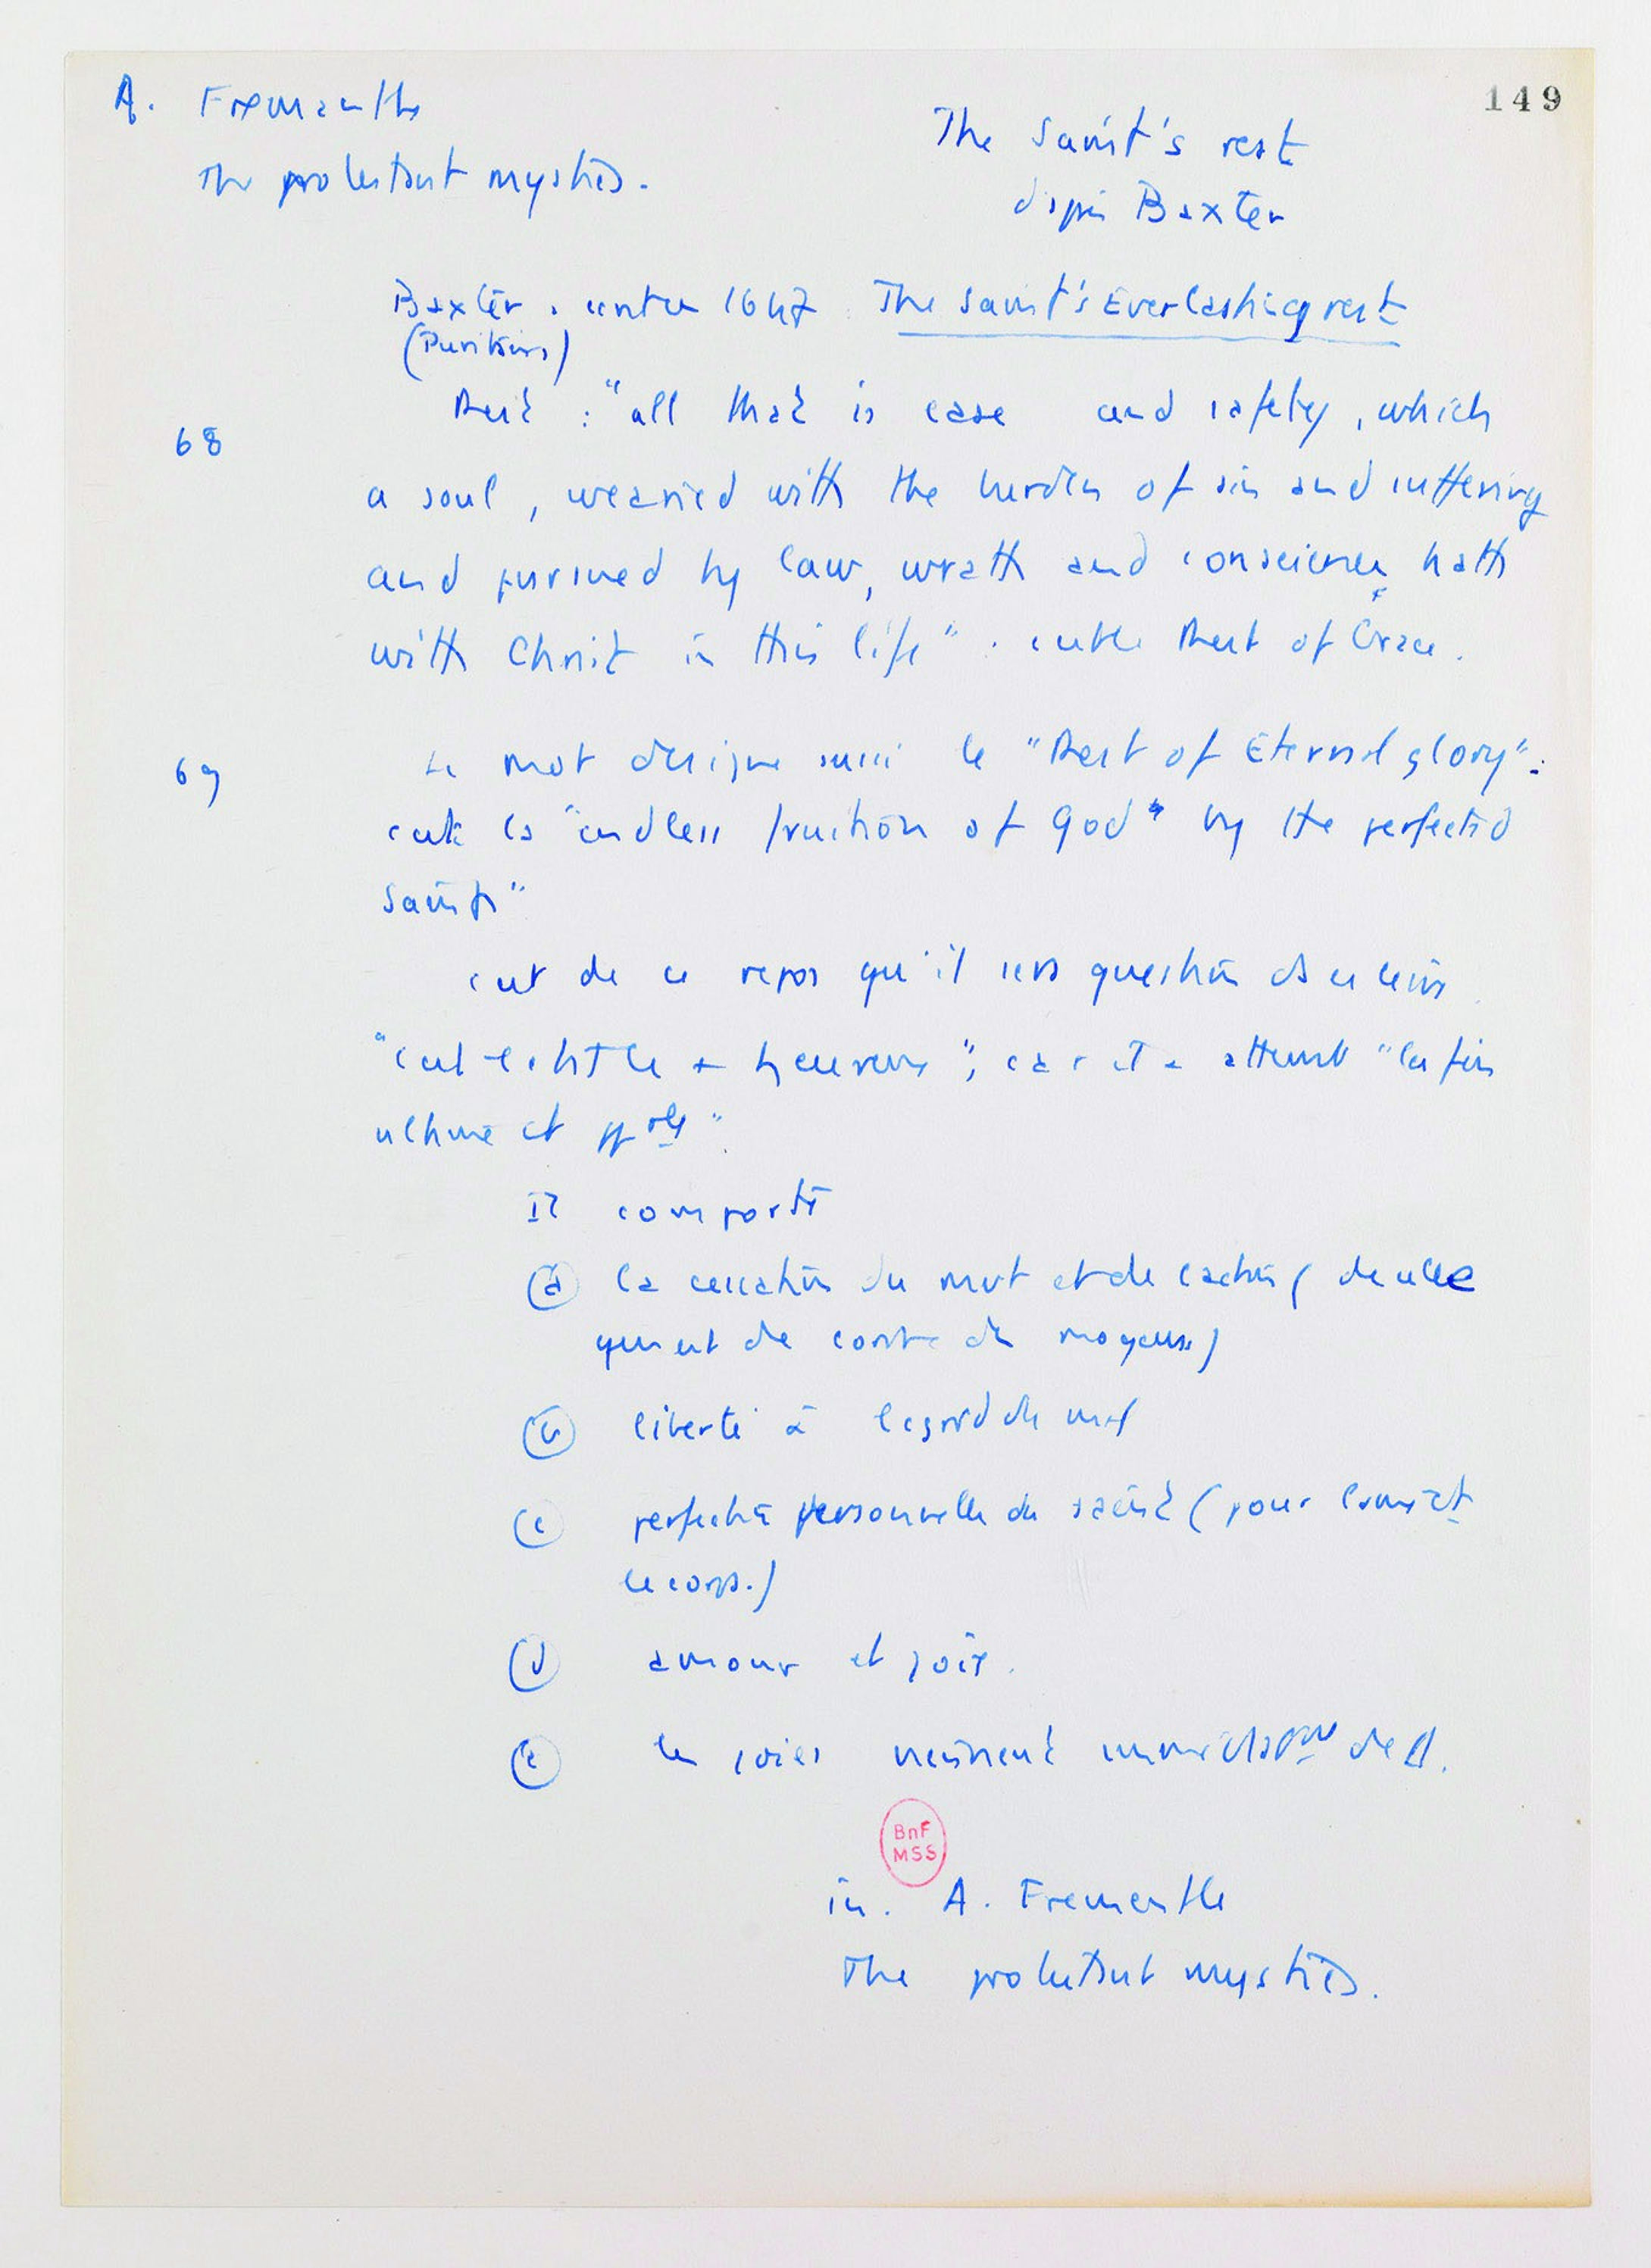 149
A. Fremantle
The protestant mystics.
The Saint's rest
d'après Baxter
Baxter . écrit en 1647 The Saint's Everlasting rest
(Puritains)
68
Rest : "all that is ease and safety, which
a soul, wearied with the burden of sin and suffering
and pursued by law, wrath and conscience, hath
with Christ in this life" . c'est le Rest of Grace.
69
Le mot désigne aussi le "Rest of Eternal glory":
c'est la "endless fruition of God" by the perfected
Saints"
c'est de ce repos qu'il sera question ds ce
"cet état heureux"; car il a atteint "la fin
ultime et ppale".
Il comporte
(a) la cessation du mvt et de l'action (de celle
qui est de l'ordre des moyens)
(b) liberté à l'égard du mal
(c) perfection personnelle du saint (pour l'âme et
le corps.)
(d) amour et joie.
(e) les joies viennent immédiatement de D.
BnF
MSS
in. A. Fremantle
The protestant mystics.